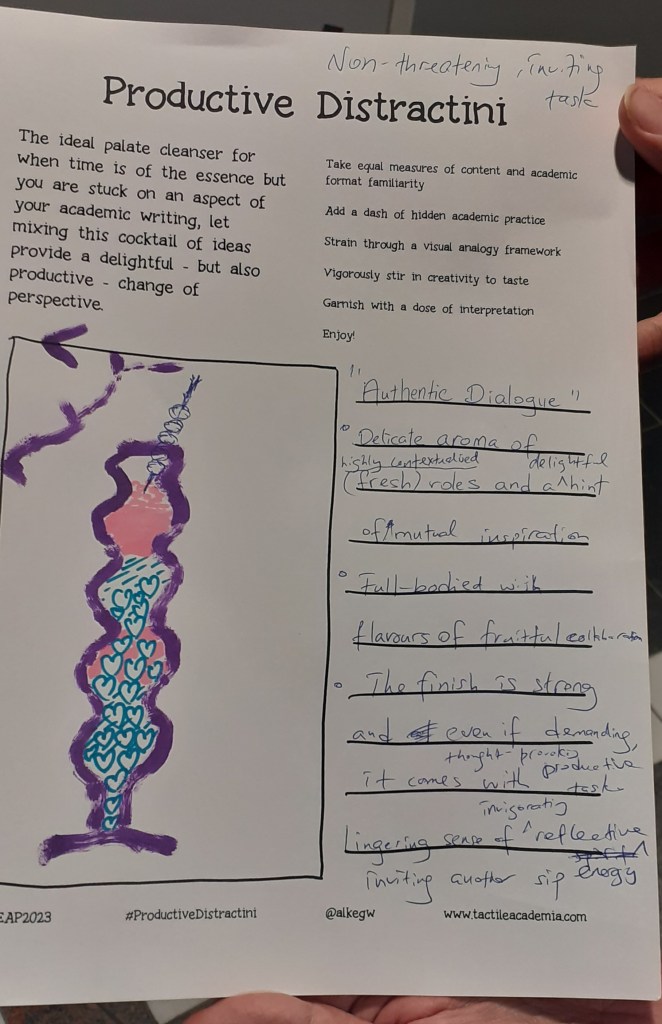 Non-threatening, inviting
task
Productive Distractini
The ideal palate cleanser for
when time is of the essence but
you are stuck on an aspect of
your academic writing, let
mixing this cocktail of ideas
provide a delightful - but also
productive - change of
perspective.
Take equal measures of content and academic
format familiarity
Add a dash of hidden academic practice
Strain through a visual analogy framework
Vigorously stir in creativity to taste
Garnish with a dose of interpretation
Enjoy!
"Authentic Dialogue"
Delicate aroma of
highly contextualized delightful
(fresh) roles and a ^ hint
of mutual inspiration
Full-bodied with
flavours of fruitful collaboration
The finish is strong
and even if demanding,
thought-provoking productive
it comes with task
invigorating
Lingering sense of ^ reflective
energy
inviting another sip
EAP2023 #ProductiveDistractini @alkegw www.tactileacademia.com